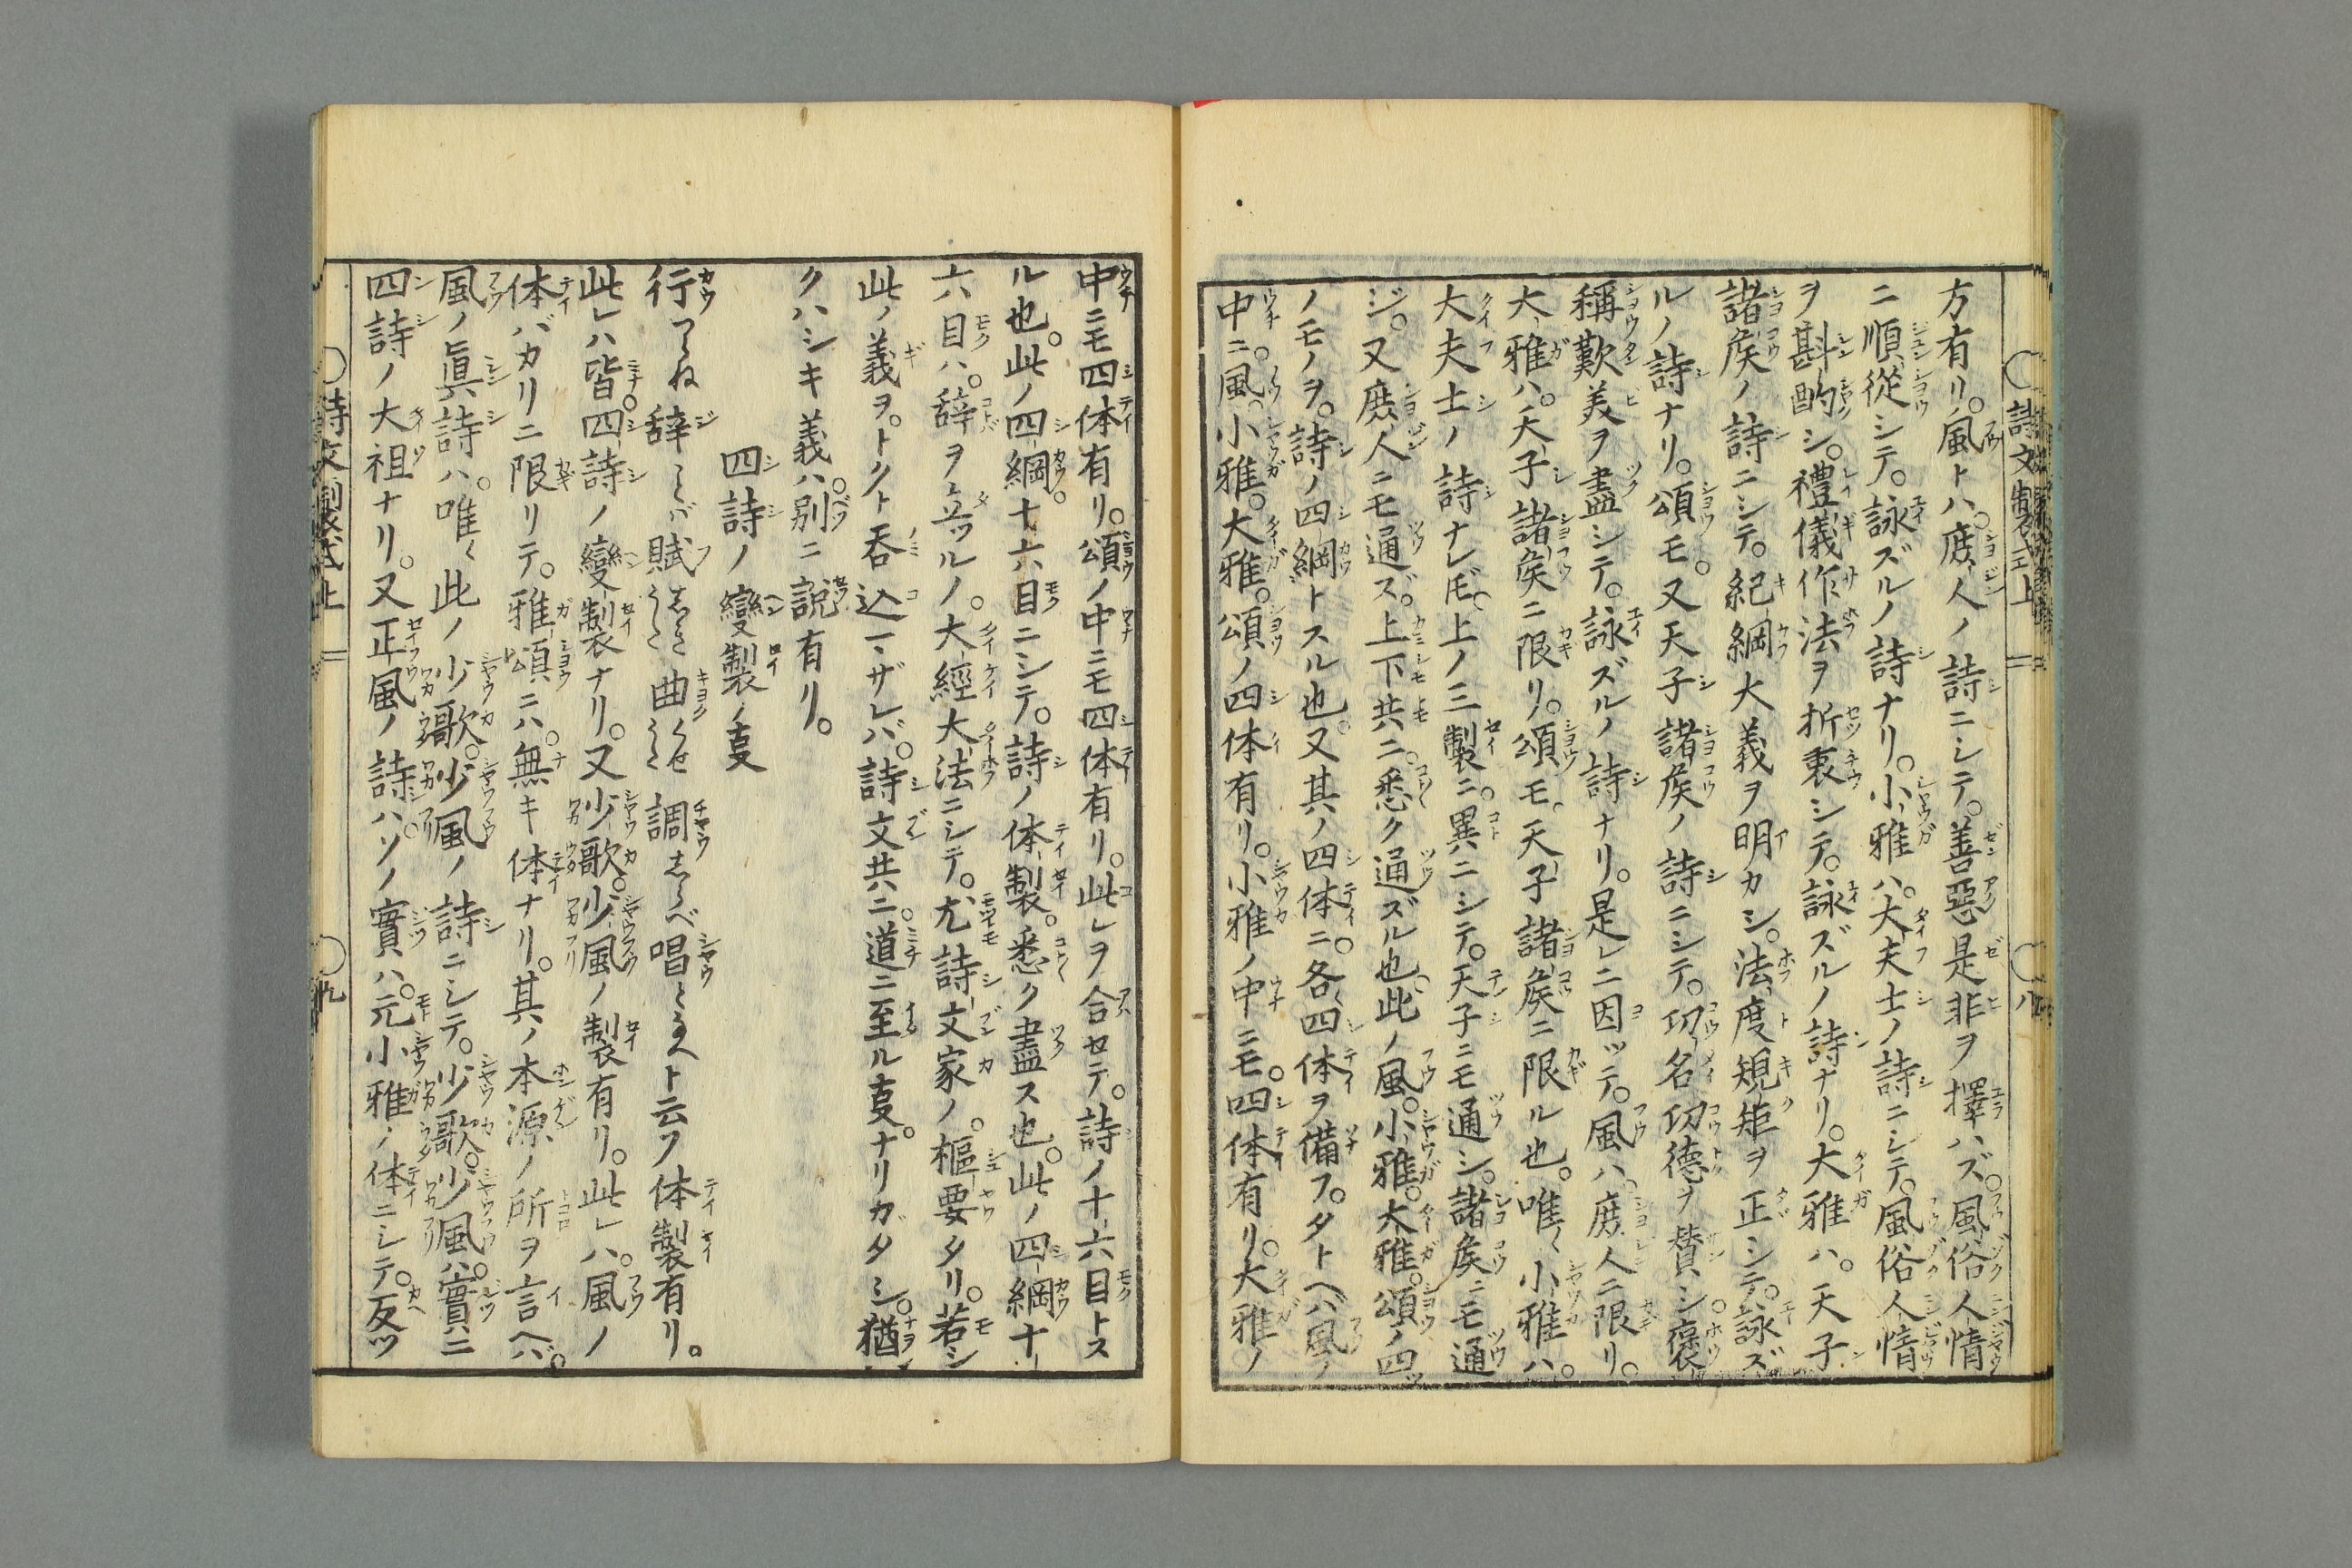 方有リ。風トハ。庻人ノ詩ニシテ。善惡是非ヲ擇ハズ。風俗人情
ニ順從シテ。詠ズルノ詩ナリ。小雅ハ。大夫士ノ詩ニシテ。風俗人情
ヲ斟酌シ。禮儀作法ヲ折衷シテ。詠ズルノ詩ナリ。大雅ハ。天子
諸矦ノ詩ニシテ。紀綱大義ヲ明カシ。法度規矩ヲ正シテ。詠ズ
ルノ詩ナリ。頌モ。又天子諸矦ノ詩ニシテ。功名功德ヲ賛シ。褒
稱歎美ヲ盡シテ。詠ズルノ詩ナリ。是レニ因ッテ。風ハ。庻人ニ限リ。
大雅ハ。天子諸矦ニ限リ。頌モ。天子諸矦ニ限ル也。唯〻小雅ハ。
大夫士ノ詩ナレ𪜈。上ノ三製ニ。異ニシテ。天子ニモ通シ。諸矦ニモ通
ジ。又庻人ニモ通ズ。上下共ニ。悉ク通ズル也。此ノ風。小雅。大雅。頌ノ四ッ
ノモノヲ。詩ノ四綱トスル也。又其ノ四体ニ。各〻四体ヲ備フ。タトヘバ風ノ
中ニ。風。小雅。大雅。頌ノ四体有リ。小雅ノ中ニモ。四体有リ。大雅ノ
詩文製式上 二 〇八
中ニモ四体有リ。頌ノ中ニモ四体有リ。此レヲ合セテ。詩ノ十六目トス
ル也。此ノ四綱。十六目ニシテ。詩ノ体製。悉ク盡ス也。此ノ四綱十
六目ハ。辞ヲ立ツルノ。大經大法ニシテ。尤詩文家ノ。樞要タリ。若シ
此ノ義ヲ。トクト呑込マザレバ。詩文共ニ。道ニ至ル叓。ナリガタシ。猶
クハシキ義ハ。別ニ説有リ。
四詩ノ變製ノ叓
行つらね辞ことば賦しきうた曲くせうた調しらべ唱となへト云フ体製有リ。
此レハ皆。四詩ノ變製ナリ。又少歌。少風ノ製有リ。此レハ。風ノ
体バカリニ限リテ。雅頌ニハ。無キ体ナリ。其ノ本源ノ所ヲ言ヘバ。
風ノ眞詩ハ。唯〻此ノ少歌。少風ノ詩ニシテ。少歌。少風ハ。實ニ
四詩ノ大祖ナリ。又正風ノ詩ハ。ソノ實ハ。元小雅ノ体ニシテ。反ッ
詩文製式上 二 〇九